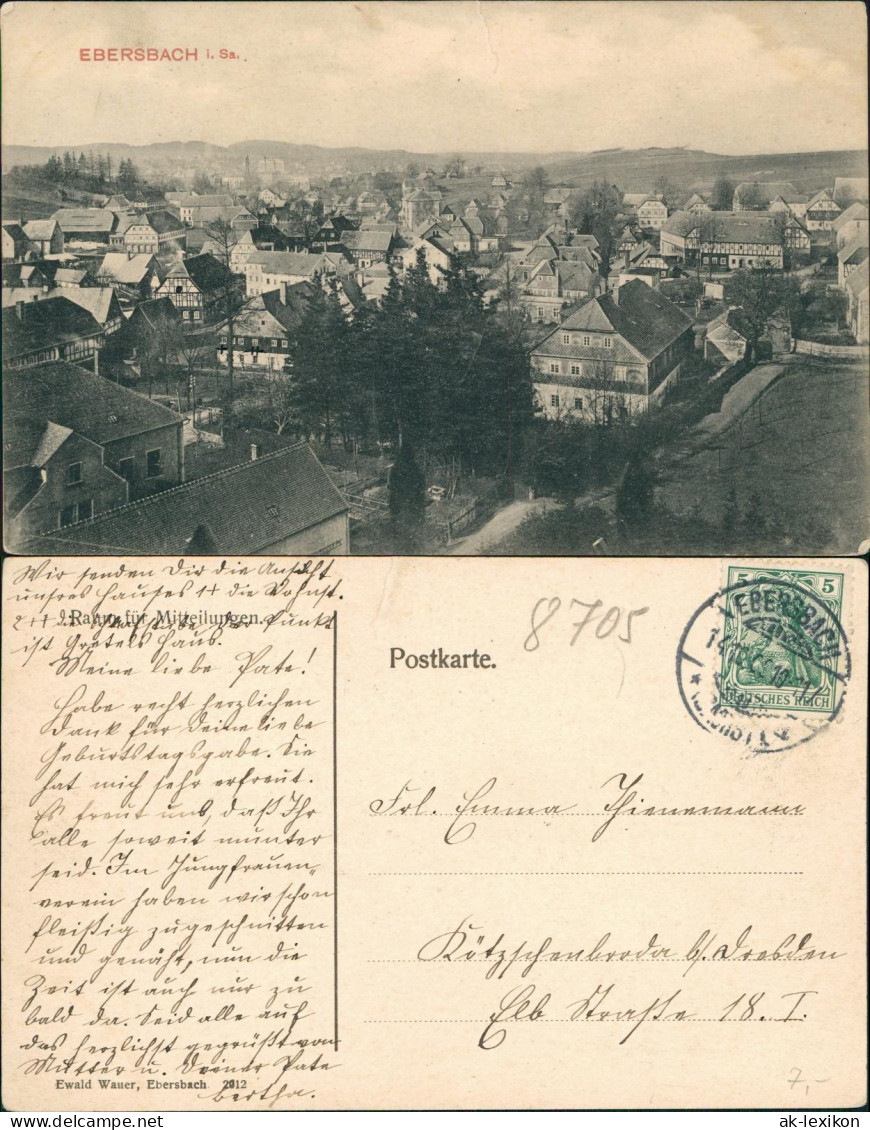 EBERSBACH i. Sa.
Wir senden Dir die Ansicht
unsres Hauses 1+ die Wohnst.
2++ der Punkt
Raum für Mitteilungen.
ist Gretels Haus.
Postkarte.
8705
5 5
DEUTSCHES REICH
EBERSBACH
Meine liebe Pate!
Habe recht herzlichen
Dank für Deine liebe
Geburtstagsgabe. Sie
hat mich sehr erfreut.
Es freut uns, daß Ihr
alle soweit munter
seid. Im Jungfrauen-
verein haben wir schon
fleißig zugeschnitten
und genäht, nun die
Zeit ist auch nur zu
bald da. Seid alle auf
das herzlichst gegrüßt von
Mutter u. Deiner Pate
Bertha.
Frl. Emma Thienemann
Kötzschenbroda b/. Dresden
Elb Straße 18. I.
Ewald Wauer, Ebersbach 2912
7,-
ak-lexikon